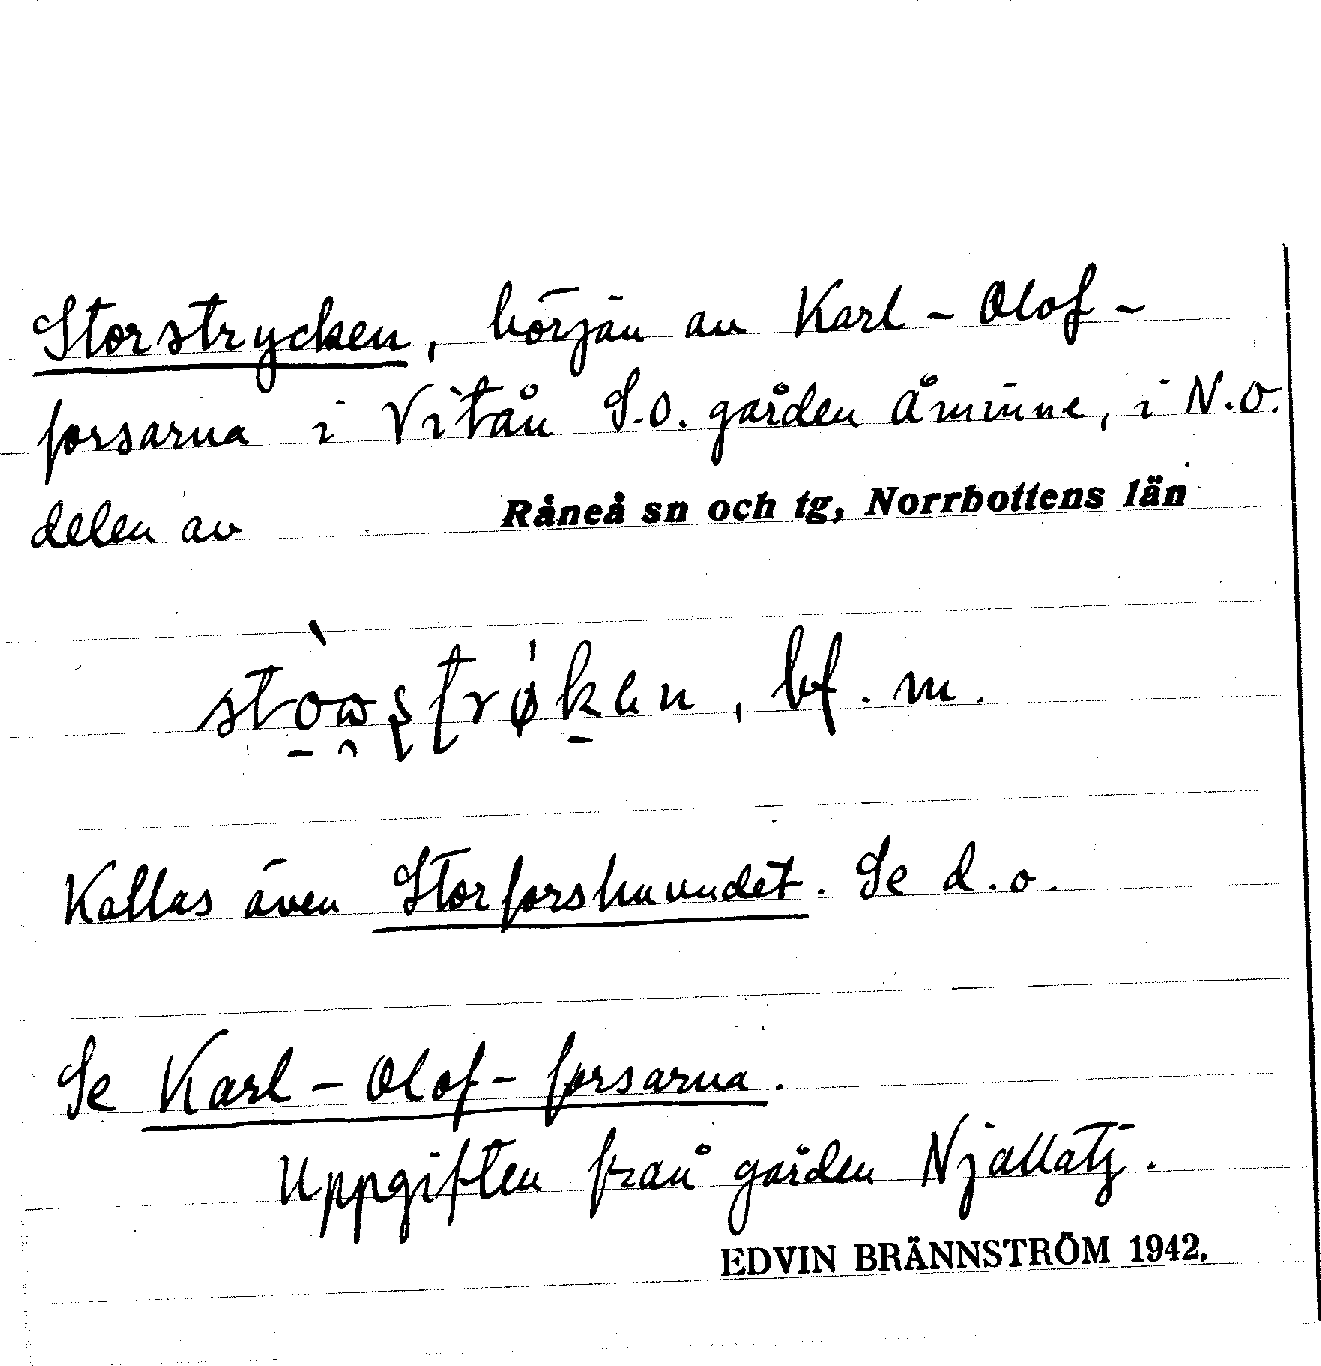 Storstrycken, början av Karl-Olof-
forsarna i Vitån S.O. gården Åminne, i N.O.
delen av Råneå sn och tg, Norrbottens län
bf. m.
Kallas även Storforshuvudet. Se d.o.
Se Karl-Olof-forsarna.
Uppgiften från gården Njallatj.
EDVIN BRÄNNSTRÖM 1942.